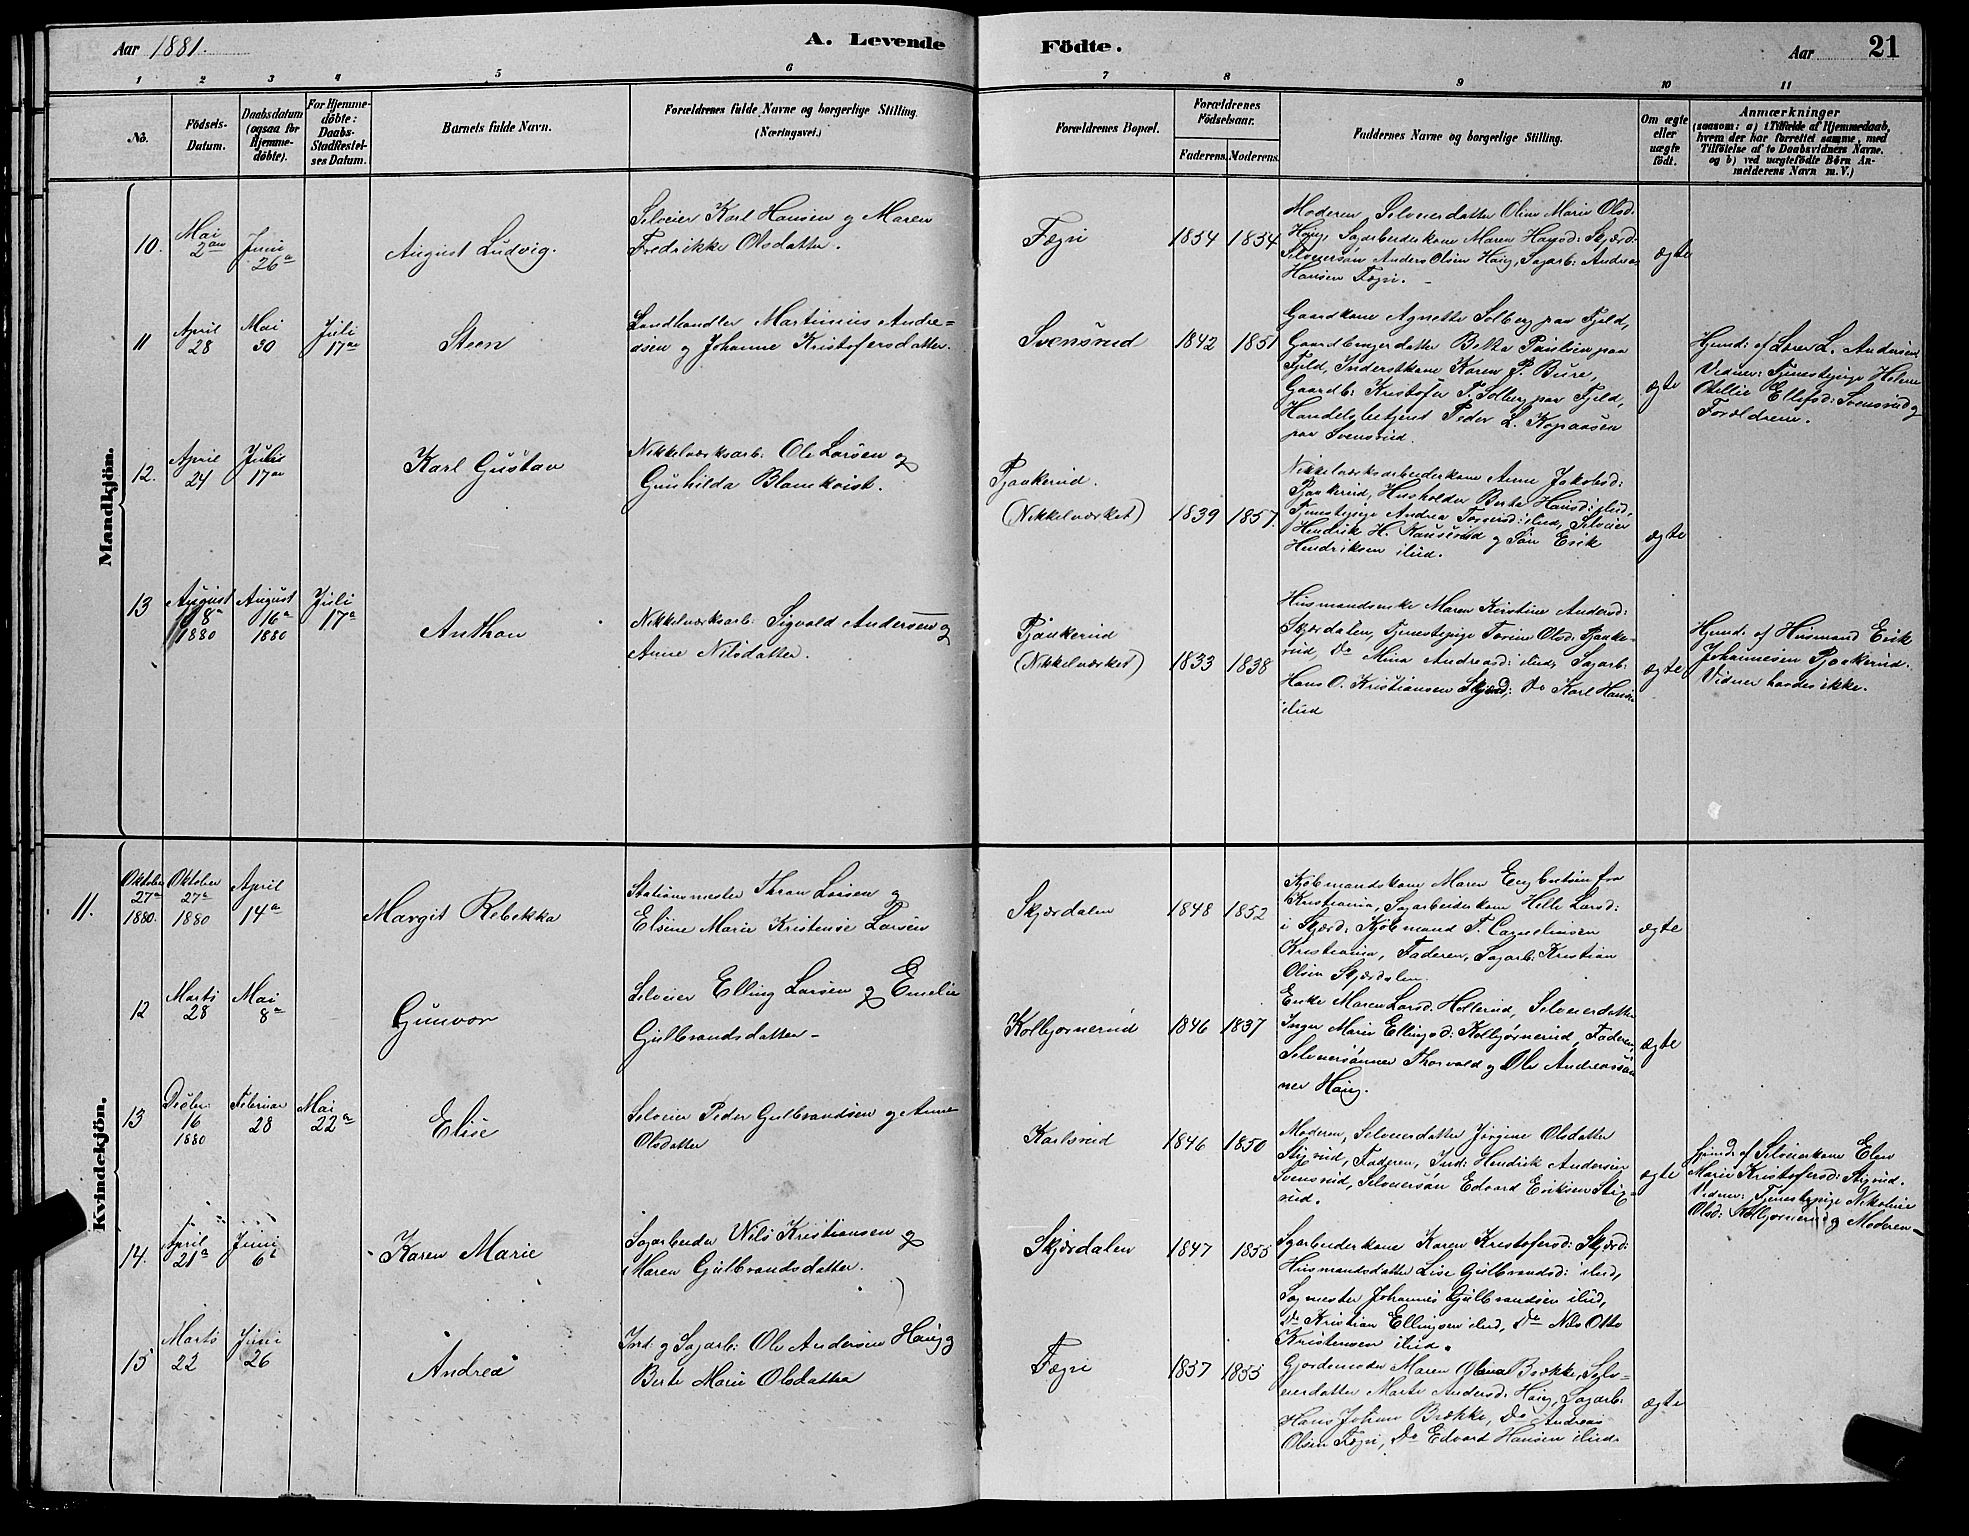 Aar 1881.
A. Levende
Födte.
Aar
21
1 2 3 4 5 6 7 8 9 10 11
No.
Födsels-
Datum.
Daabsdatum
(ogsaa for
Hjemme-
döbte).
For Hjemme-
döbte:
Daabs-
Stadfestel-
ses Datum.
Barnets fulde Navn.
Forældrenes fulde Navne og borgerlige Stilling.
(Næringsvei.)
Forældrenes Bopæl.
Forældrenes
Födselsaar.
Faderens. Moderens.
Faddernes Navne og borgerlige Stilling.
Om ægte
eller
uægte
födt.
Anmærkninger
(saasom: a) i Tilfælde af Hjemmedaab,
hvem der har forrettet samme, med
Tilföielse af to Daabsvidners Navne.
og b) ved uægtefödte Börn An-
melderens Navn m.V.)
Mandkjön.
10.
Mai
2den
Juni
26a
August Ludvig.
Selveier Karl Hansen og Maren
Fredrikke Olsdatter.
Fægri
1854 1854
Moderen, Selveierdatter Oline Marie Olsd.
Haug, Sagarbeiderkone Maren Hansd: Skjærd.
Selveiersøn Anders Olsen Haug, Sagarb: Andreas
Hansen Fægri.
ægte
11
April
28
Mai
30
Juli
17de
Steen
Landhandler Martinius Andre=
asen og Johanne Kristofersdatter.
Svensrud
1842 1851
Gaardkone Agnette Solberg paa Fjeld,
Gaardbrugerdatter Betta Paulsen paa
Fjeld, Inderstkone Karen P. Bure,
Gaardb: Kristofer T. Solberg paa Fjeld,
Handelsbetjent Peder L. Kopaasen
paa Svensrud.
ægte
Hjmd: af Lærer L. Andersen
Vidner: Tjenestepige Helene
Otellie Ellefsd: Svensrud og
Forældrene.
12.
April
24
Juli
17de
Karl Gustav
Nikkelværksarb: Ole Larsen og
Gunhilda Blomkvist.
Pjaakerud.
(Nikkelværket)
1839 1857
Nikkelværksarbeiderkone Anne Jakobsd:
Pjaakerud, Husholder Berta Hansd: ibid,
Tjenestepige Andrea ibid, Selveier
Hendrik H. og Søn Erik
Hendriksen ibid.
ægte
13
August
8a
1880
August
16a
1880
Juli
17a
Anthon
Nikkelværksarb: Sigvald Andersen og
Anne Nilsdatter.
Pjaakerud
(Nikkelværket)
1833 1838
Husmandsenke Maren Kristine Andersd:
Skjærdalen, Tjenestepige Torine Olsd: Pjaake-
rud, Do Mina Andreasd: ibid, Sagarb:
Hans O. Kristiansen Skjærd: Do Karl Hansen
ibid
ægte
Hjmd: af Husmand Erik
Johannesen Pjaakerud.
Vidner havdes ikke.
Kvindekjön.
11.
Oktober
27a
1880.
Oktober
27a
1880
April
14a
Margit Rebekka
Stationsmester Thron Larsen og
Elsine Marie Kristense Larsen
Skjærdalen
1848 1852
Kjøbmandskone Maren Engbertsen fra
Kristiania, Sagarbeiderkone Helle Larsd:
i Skjærd: Kjøbmand T.
Kristiania, Faderen, Sagarb: Kristian
Olsen Skjærdalen.
ægte
12
Marts
28
Mai
8a
Gunvor
Selveier Elling Larsen og Emelie
Gulbrandsdatter
Kolbjørnerud
1846 1837
Enke Maren Larsd: Hollerud, Selveierdatter
Inger Marie Ellingsd: Kolbjørnerud, Faderen,
Selveiersønner Thorvald og Ole Andreassøn-
ner Haug.
ægte
13
Decbr:
16
1880
Februar
28
Mai
22a
Elise
Selveier Peder Gulbrandsen og Anne
Olsdatter
Karlsrud
1846 1850
Moderen, Selveierdatter Jørgine Olsdatter
Stigrud, Faderen, Ind: Hendrik Andersen
Svensrud, Selveiersøn Edvard Eriksen Stig-
rud.
ægte
Hjmd: af Selveierkone Elen
Marie Kristofersd: Stigrud.
Vidner: Tjenestepige Nikoline
Olsd: Kolbjørnerud og Moderen
14.
April
21a
Juni
6t
Karen Marie
Sagarbeider Nils Kristiansen og
Maren Gulbrandsdatter.
Skjærdalen
1847 1855
Sagarbeiderkone Karen Kristofersd: Skjærd:
Husmandsdatter Lise Gulbrandsd: ibid,
Sagmester Johannes Gulbrandsen ibid,
Do Kristian Ellingsen ibid, Do Nils Otto
Kristensen ibid.
15
Marts
22
Juni
26
Andrea
Ind: og Sagarb: Ole Andersen Haug og
Berte Marie Olsdatter
Fægri
1857 1855
Gjordemoder Maren Oline Brække, Selv-
eierdatter Marte Andersd: Haug, Sagarb:
Hans Johan Brække, Do Andreas
Olsen Fægri, Do Edvard Hansen ibid.
ægte